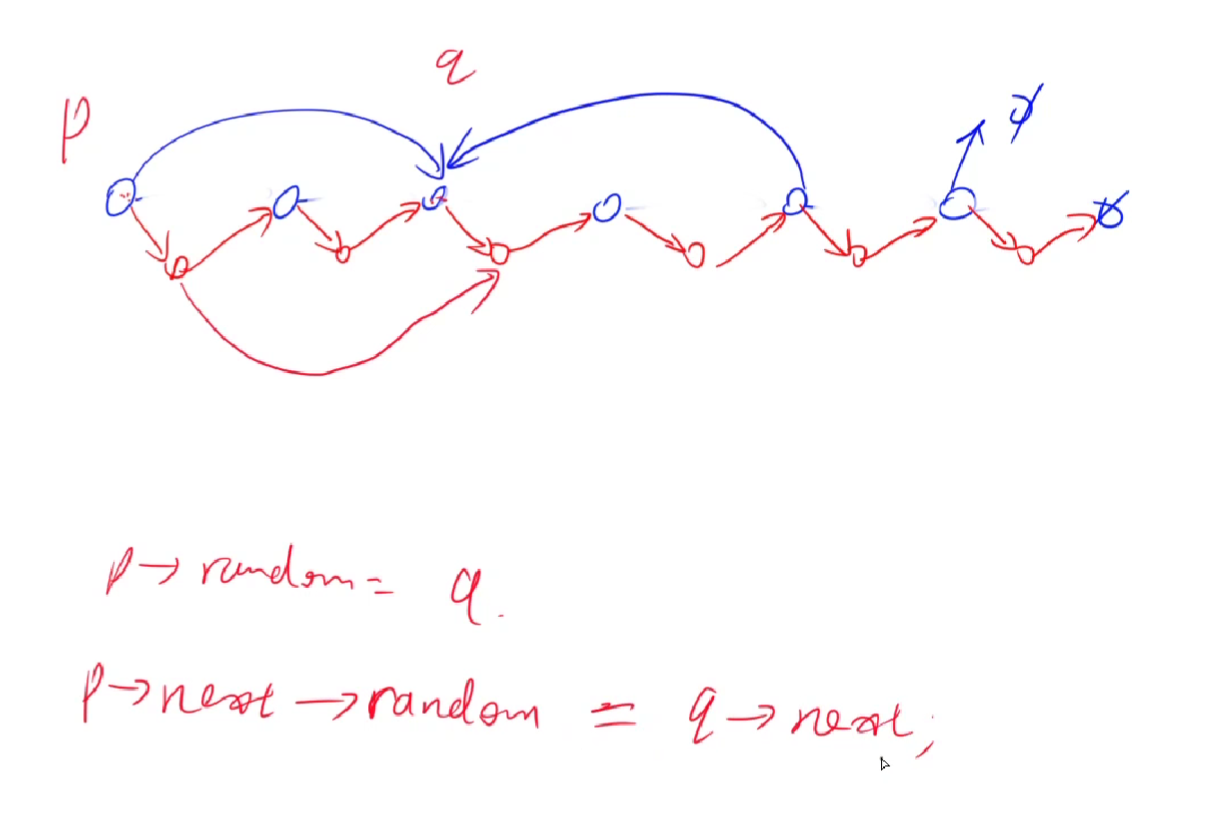 q
p
∅
∅
p→random= q.
p→next→random = q→next;